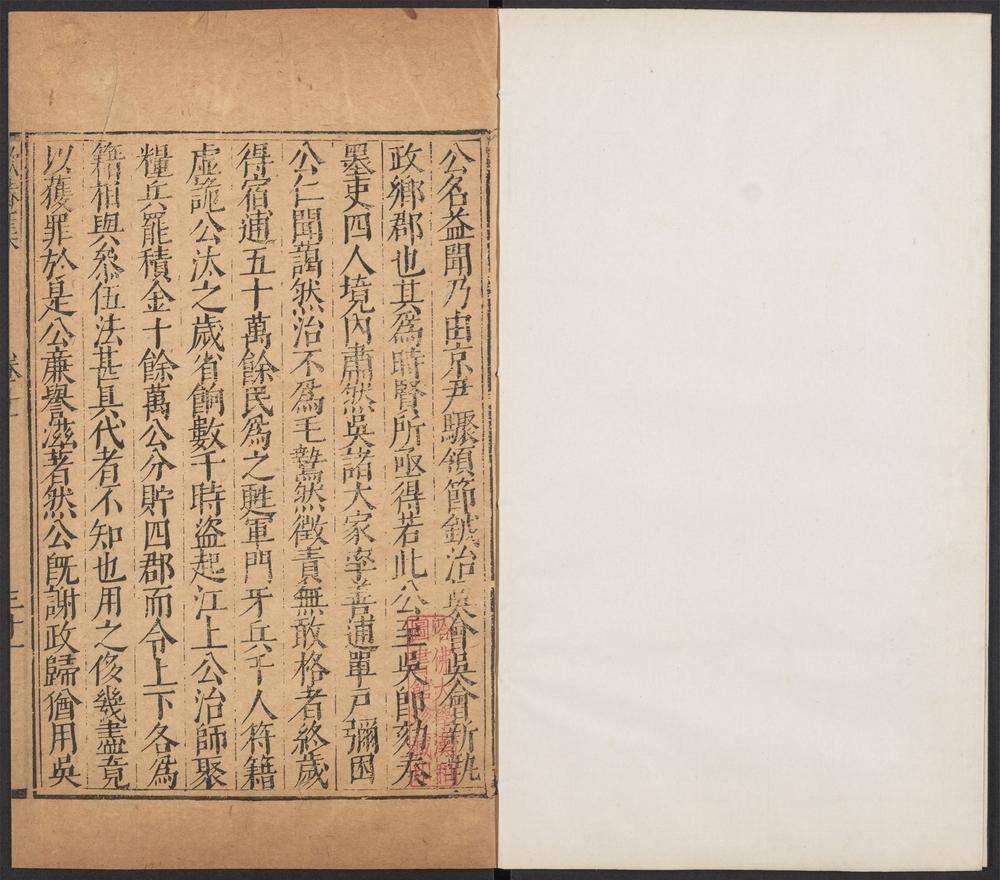 公名益聞乃由京尹驟領節鉞治吳會吳會新執
政鄉郡也其為時賢所亟得若此公至吳即劾奏
墨吏四人境內肅然吳諸大家率善逋單戶彌困
公仁聞藹然治不為毛鷙然徵責無敢格者終歲
得宿逋五十萬餘民為之甦軍門牙兵千人符籍
虛詭公汰之歲省餉數千時盜起江上公治師聚
糧兵罷積金十餘萬公分貯四郡而令上下各為
籍相與叅伍法甚具代者不知也用之侈幾盡竟
以獲罪於是公廉譽滋著然公旣謝政歸猶用吳
哈佛大學漢和
圖書館珍藏印